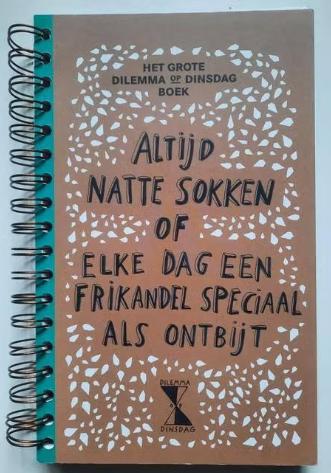 HET GROTE
DILEMMA OP DINSDAG
BOEK
ALTIJD
NATTE SOKKEN
OF
ELKE DAG EEN
FRIKANDEL SPECIAAL
ALS ONTBIJT
DILEMMA
DINSDAG